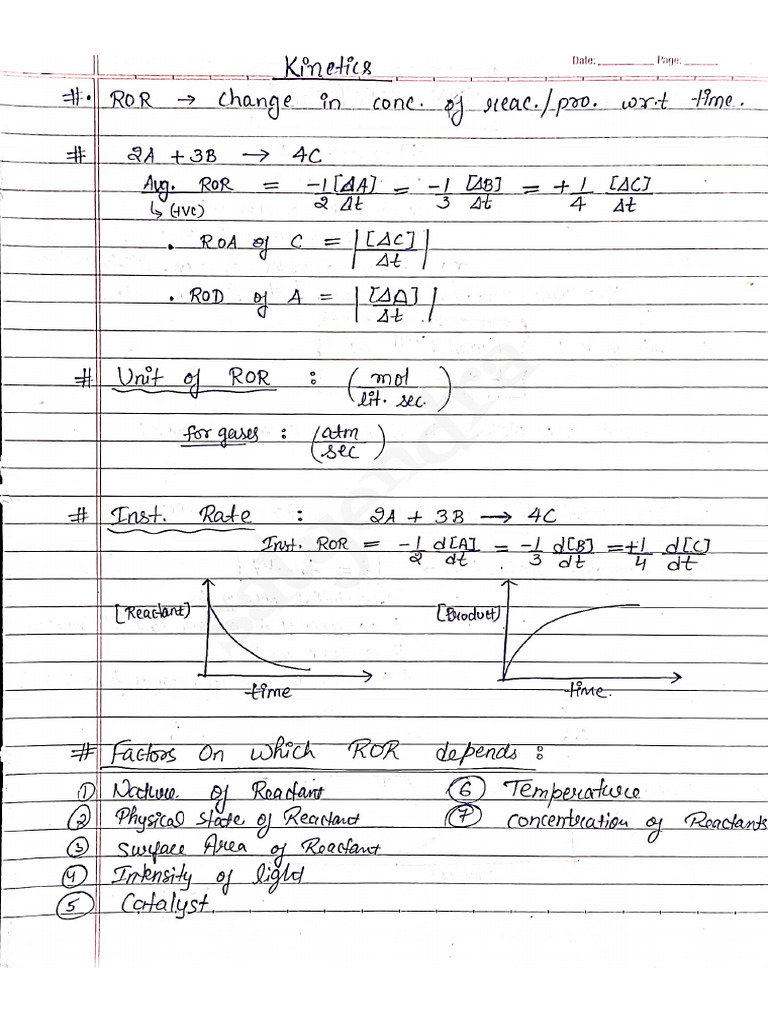 Kinetics
Date: Page:
#. ROR → Change in conc. of reac./pro. w.r.t time.
# 2A + 3B → 4C
Avg. ROR = -1/2 [ΔA]/Δt = -1/3 [ΔB]/Δt = +1/4 [ΔC]/Δt
↳ (+ve)
• ROA of C = |[ΔC]/Δt|
• ROD of A = |[ΔA]/Δt|
# Unit of ROR : (mol/lit. sec.)
for gases : (atm/sec)
# Inst. Rate : 2A + 3B → 4C
Inst. ROR = -1/2 d[A]/dt = -1/3 d[B]/dt = +1/4 d[C]/dt
[Reactant]
time
[Product]
time.
# Factors On which ROR depends :
① Nature of Reactant
② Physical state of Reactant
③ Surface Area of Reactant
④ Intensity of light
⑤ Catalyst
⑥ Temperature
⑦ Concentration of Reactants